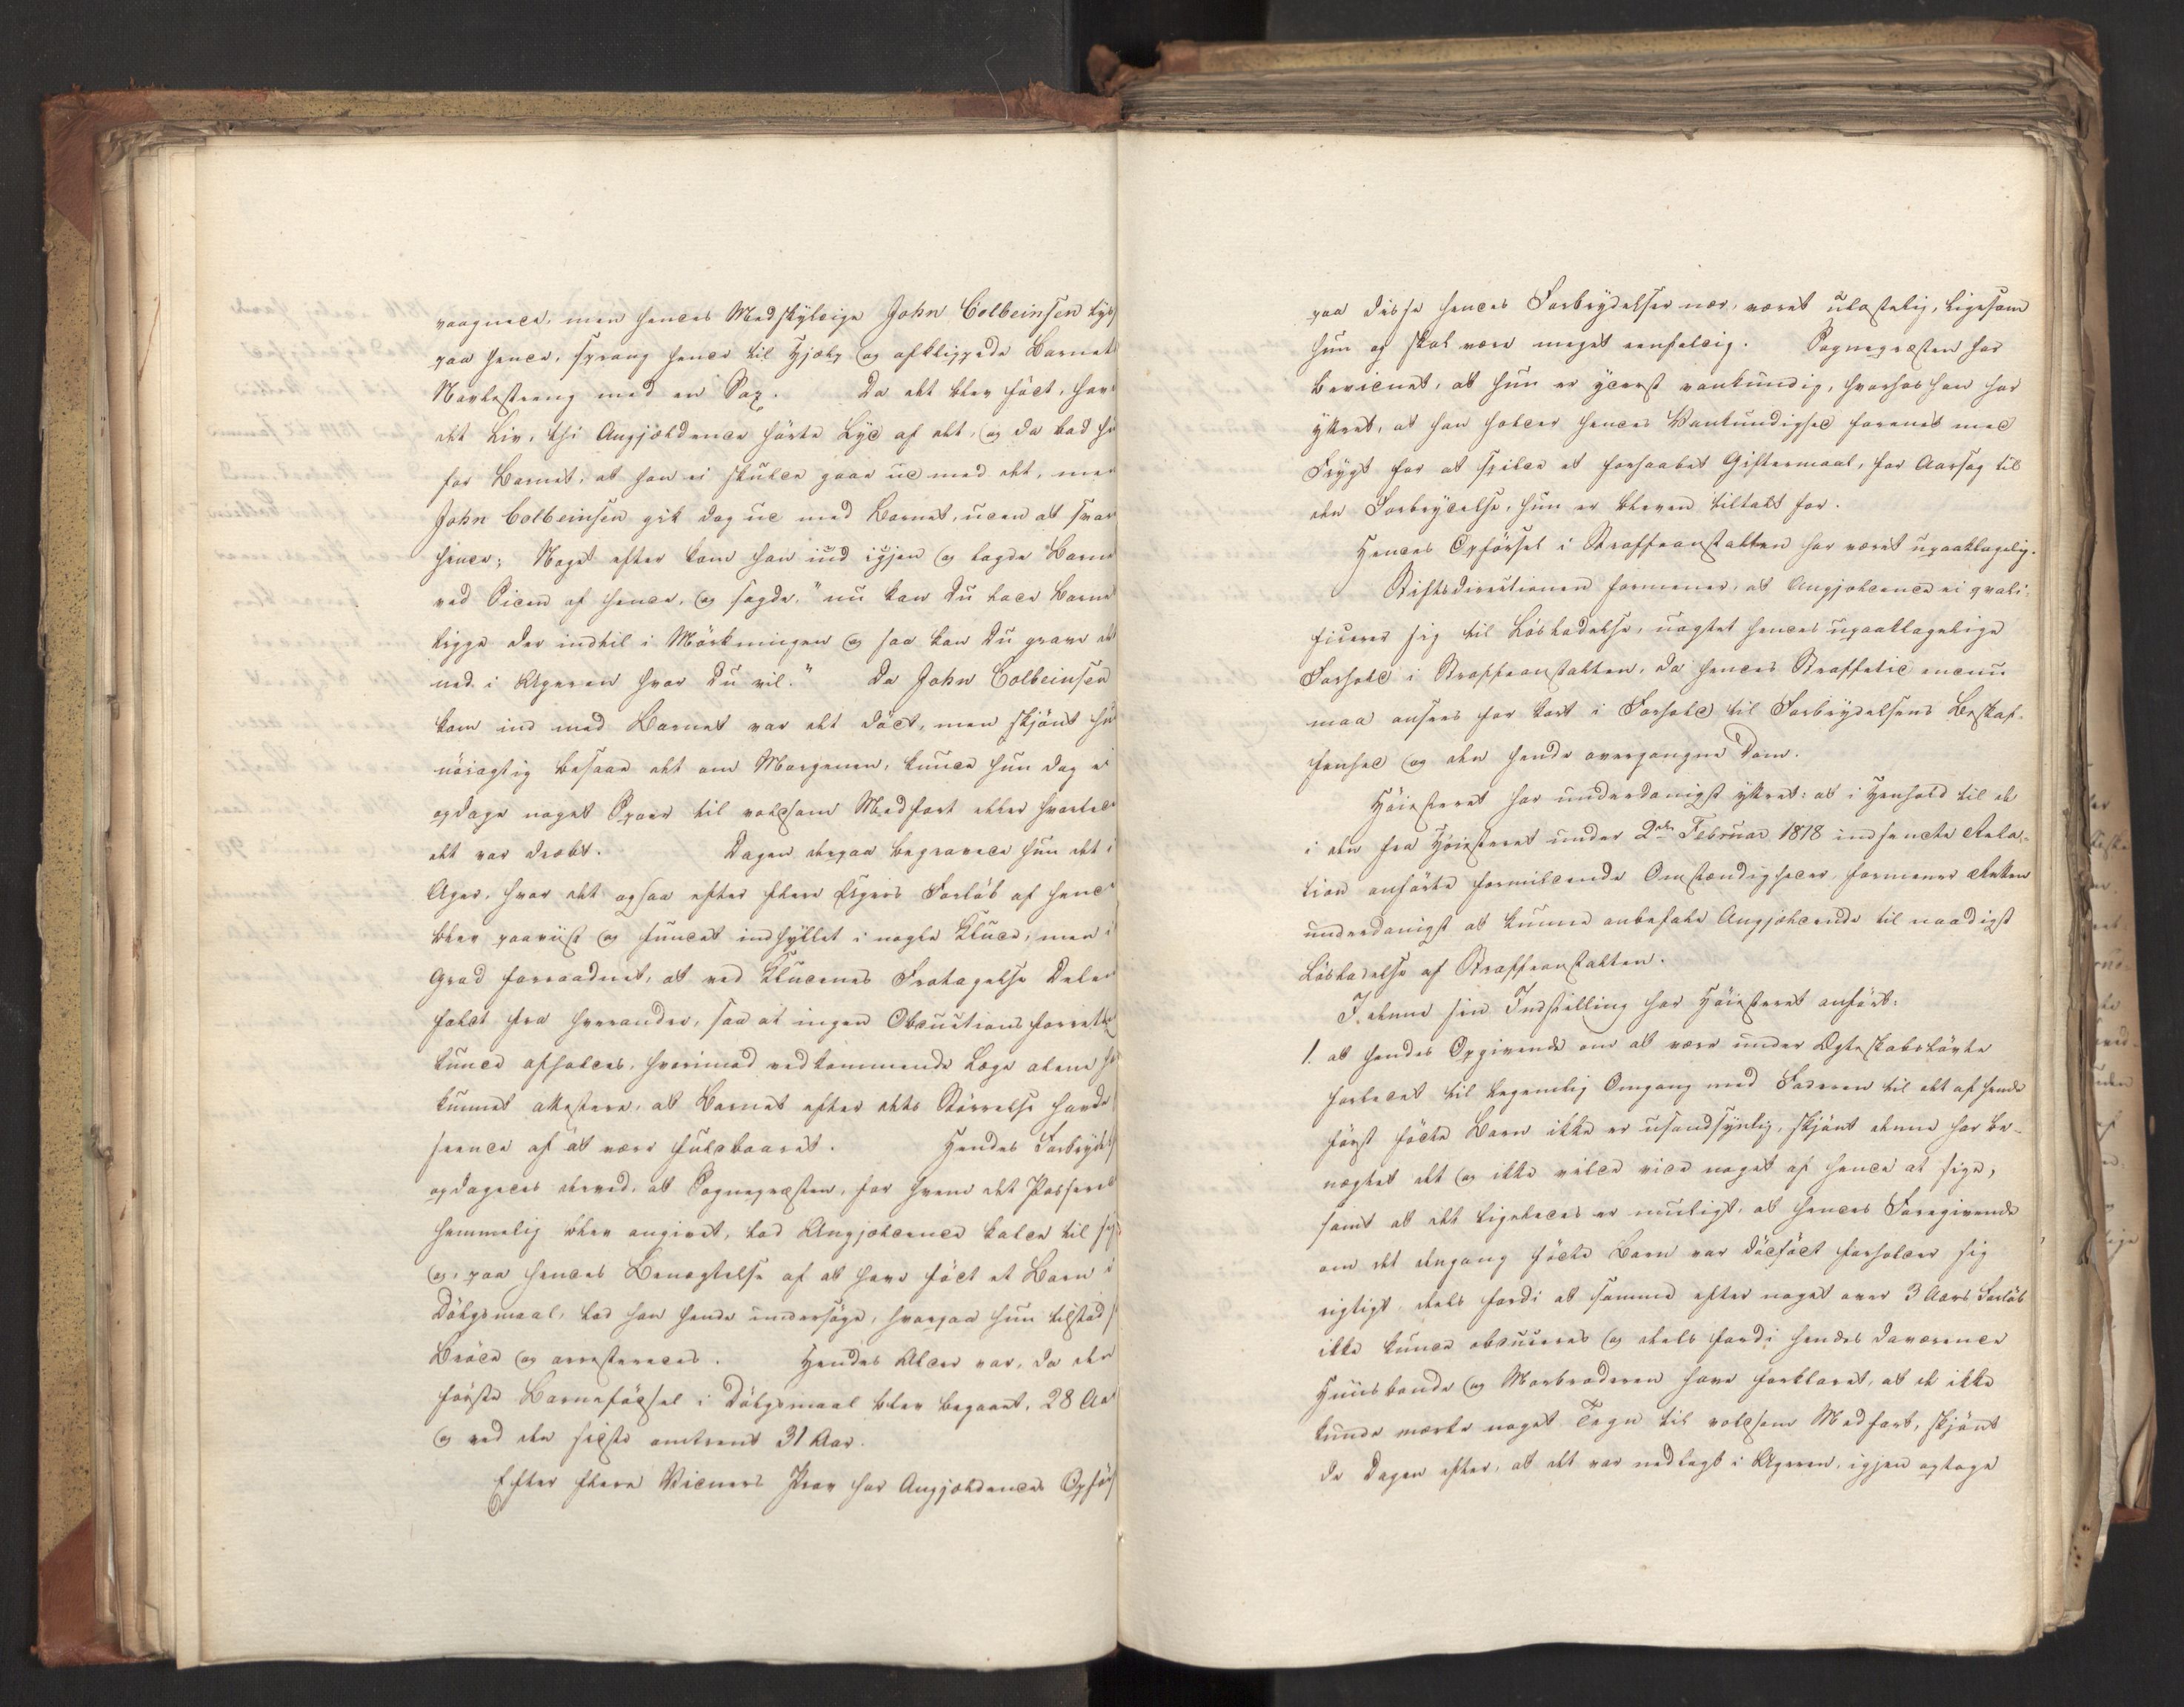 vaagnede, men hendes Medskyldige John Colbeinsen lyd
paa hende, sprang hende til Hjælp og afklippede Barnets
Navlestreng med en Sax. Da det blev född, hav
det Liv, thi Angjældende hörte Lyd af det, og da bad hu
for Barnet, at han ei skulde gaae ud med det, men
John Colbeinsen gik dog ud med Barnet, uden at svar
hende; Noget efter kom han ind igjen og lagde Barne
ved Siden af hende, og sagde, "nu kan Du lade Barne
ligge der indtil i Mörkningen og saa kan Du grave det
ned i Ageren hvor Du vil." Da John Colbeinsen
kom ind med Barnet var det dödt, men skjönt hu
nöiagtig besaae det om Morgenen, kunde hun dog ei
opdage noget Spoer til voldsom Medfart eller hvorled
det var dræbt. Dagen derpaa begravede hun det i
Ager, hvor det ogsaa efter flere Ugers Forlöb af hend
blev paaviist og fundet indhyllet i nogle Klude; men i
Grad forraadnet, at ved Kludenes Fratagelse Dele
faldt fra hverandre, saa at ingen Obductionsforrette
kunde afholdes, hvorimod vedkommende Læge alene ha
kunnet attestere, at Barnet efter dets Störrelse havde
seende af at være fuldbaaret. Hendes Forbrydels
opdagedes derved, at Sognepræsten, for hvem det Passered
hemmelig blev angivet, lod Angjældende kalde til sig
og, paa hendes Benægtelse af at have födt et Barn i
Dölgsmaal, lod han hende undersöge, hvorpaa hun tilstod
Bröde og arresteredes. Hendes Alder var, da den
förste Barnefödsel i Dölgsmaal blev begaaet, 28 Aar
og ved den sidste omtrent 31 Aar.
Efter flere Vidners Prov har Angjældendes Opför
paa disse hendes Forbrydelser nær, været ulastelig, ligesom
hun og skal være meget eenfoldig. Sognepræsten har
bevidnet, at hun er yderst vankundig, hvorhos han har
yttret, at han holder hendes Vankundighed forenet med
Frygt for at spilde et forhaabet Giftermaal, for Aarsag til
den Forbrydelse, hun er bleven tiltalt for.
Hendes Opförsel i Straffeanstalten har været upaaklagelig.
Stiftsdirectionen formener, at Angjældende ei qvali-
ficerer sig til Lösladelse, uagtet hendes upaaklagelige
Forhold i Straffeanstalten, da hendes Straffetid endnu
maa ansees for kort i Forhold til Forbrydelsens Beskaf-
fenhed og den hende overgangne Dom.
Höiesteret har underdanigst yttret: at i Henhold til de
i den fra Höiesteret under 2den Februar 1818 indsendte Rela-
tion anförte formildende Omstændigheder, formener Retten
underdanigst at kunne anbefale Angjældende til naadigst
Lösladelse af Straffeanstalten.
I denne sin Indstilling har Höiesteret anfört:
1. at hendes Opgivende om at være under Ægteskabslövte
forledet til legemlig Omgang med Faderen til det af hende
först födte Barn ikke er usandsynlig, skjönt denne har be-
nægtet det og ikke vilde vide noget af hende at sige,
samt at det ligeledes er muligt, at hendes Foregivende
om det dengang födte Barn var dödfödt forholder sig
rigtigt, deels fordi at samme efter noget over 3 Aars Forlöb
ikke kunde obduceres og deels fordi hendes daværende
Huusbonde og Morbroderen have forklaret, at de ikke
kunde mærke noget Tegn til voldsom Medfart, skjönt
de Dagen efter, at det var nedlagt i Ageren, igjen optoge